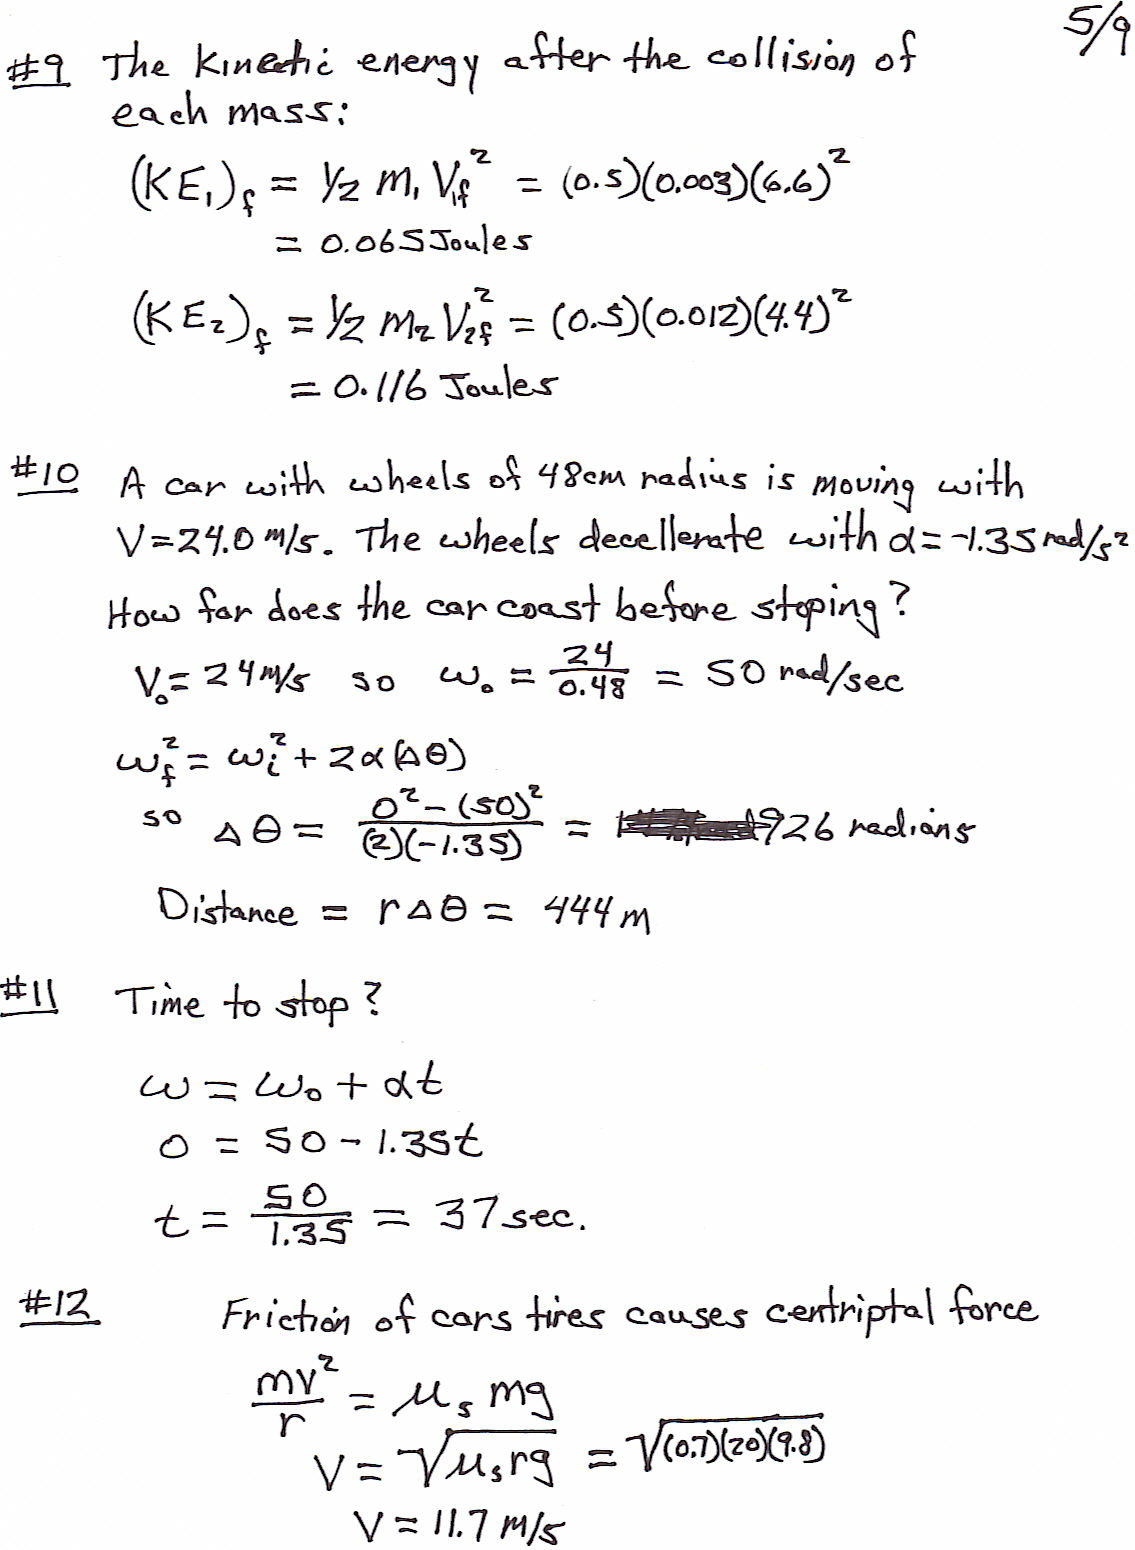 5/9
#9 The Kinetic energy after the collision of
each mass:
(KE₁)f = 1/2 m₁ V₁f² = (0.5)(0.003)(6.6)²
= 0.065 Joules
(KE₂)f = 1/2 m₂ V₂f² = (0.5)(0.012)(4.4)²
= 0.116 Joules
#10 A car with wheels of 48cm radius is moving with
V=24.0 m/s. The wheels decellerate with α=-1.35 rad/s²
How far does the car coast before stoping?
V₀=24 m/s so ω₀ = 24/0.48 = 50 rad/sec
ωf² = ωi² + 2α(Δθ)
so Δθ = (0² - (50)²)/((2)(-1.35)) = 926 radians
Distance = rΔθ = 444 m
#11 Time to stop?
ω = ω₀ + αt
0 = 50 - 1.35t
t = 50/1.35 = 37 sec.
#12 Friction of cars tires causes centriptal force
mv²/r = μs mg
V = √(μs rg) = √((0.7)(20)(9.8))
V = 11.7 m/s